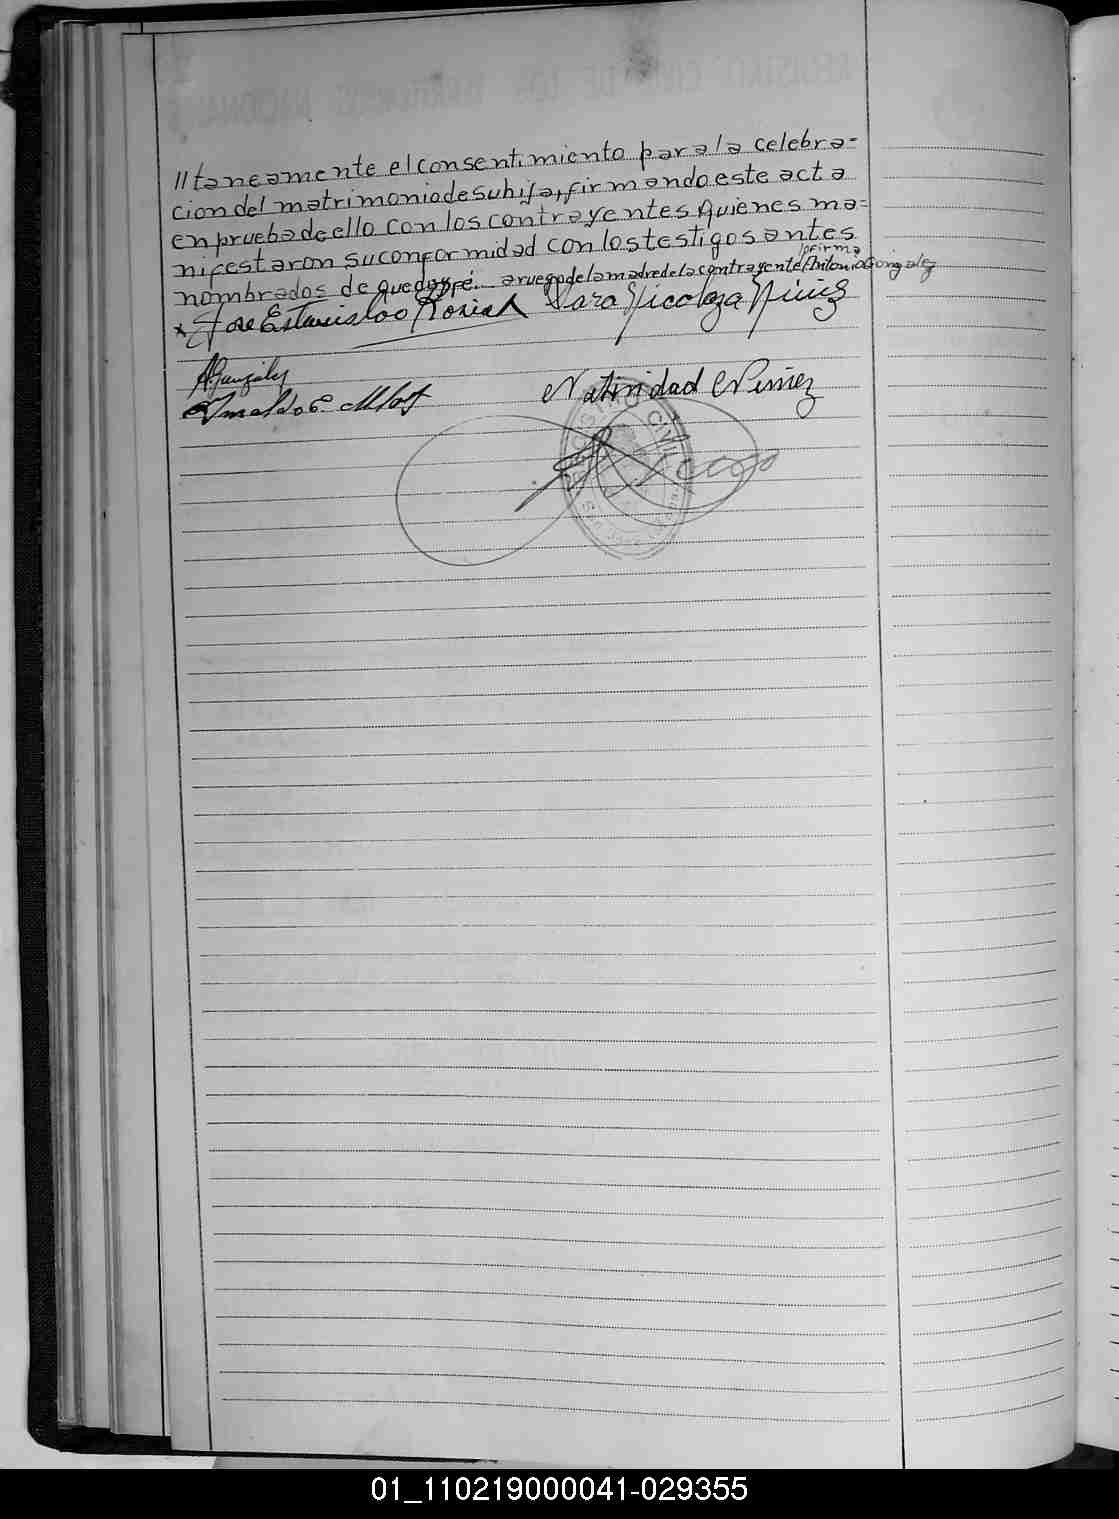 //taneamente el consentimiento para la celebra=
cion del matrimonio de su hija, firmando este acta
en prueba de ello con los contrayentes Quienes ma=
nifestaron su conformidad con los testigos antes
nombrados de que doy fé. a ruego de la madre de la contrayente lo firma Antonio Gonzalez
x Jose Estanislao Sara Nicolaza
A. Gonzalez Natividad Nuñez
REGISTRO CIVIL
01_110219000041-029355